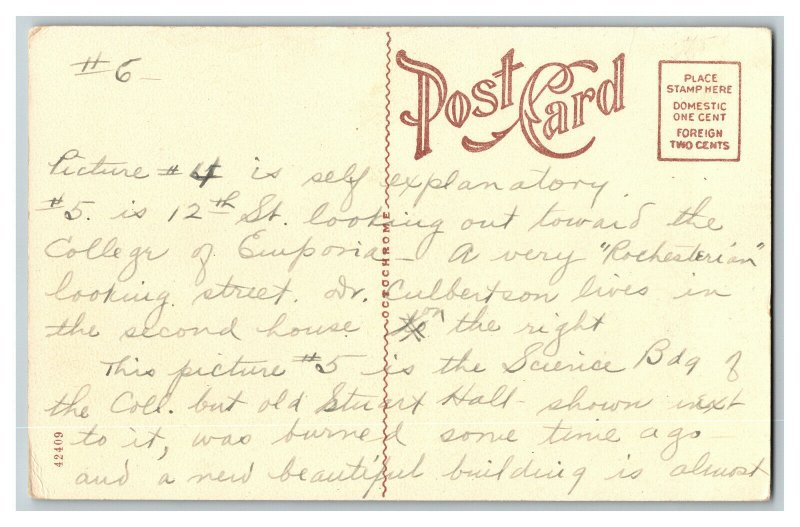 #6-
Post Card
PLACE
STAMP HERE
DOMESTIC
ONE CENT
FOREIGN
TWO CENTS
Picture #4 is self explanatory.
#5. is 12th St. looking out toward the
College of Emporia - A very "Rochesterian"
looking street. Dr. Culbertson lives in
the second house on the right
This picture #5 is the Science Bdg of
the Coll. but old Stuart Hall - shown next
to it, was burned some time ago -
and a new beautiful building is almost
OCTOCHROME
42409